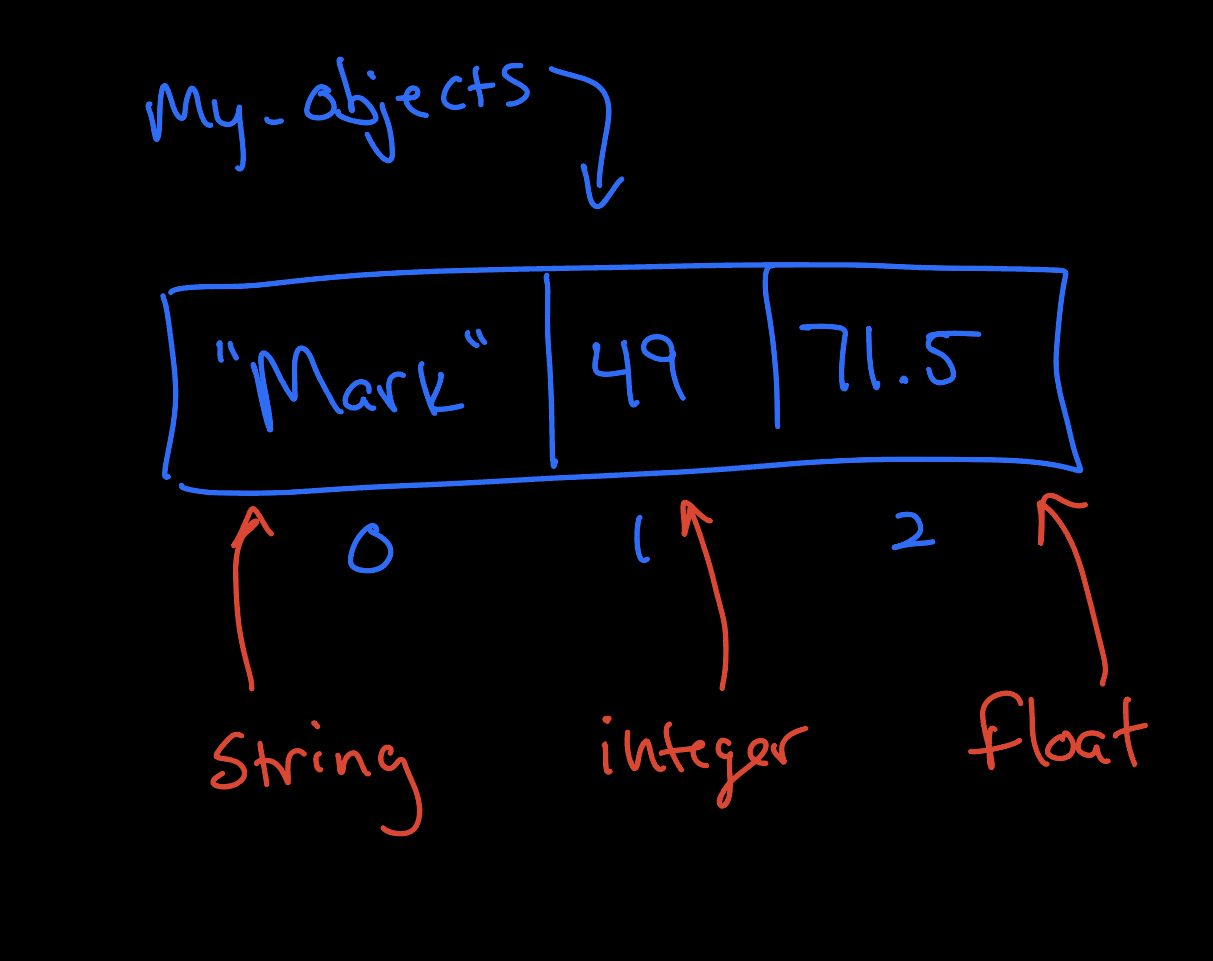 My_objects
"Mark" 49 71.5
0 1 2
String integer float